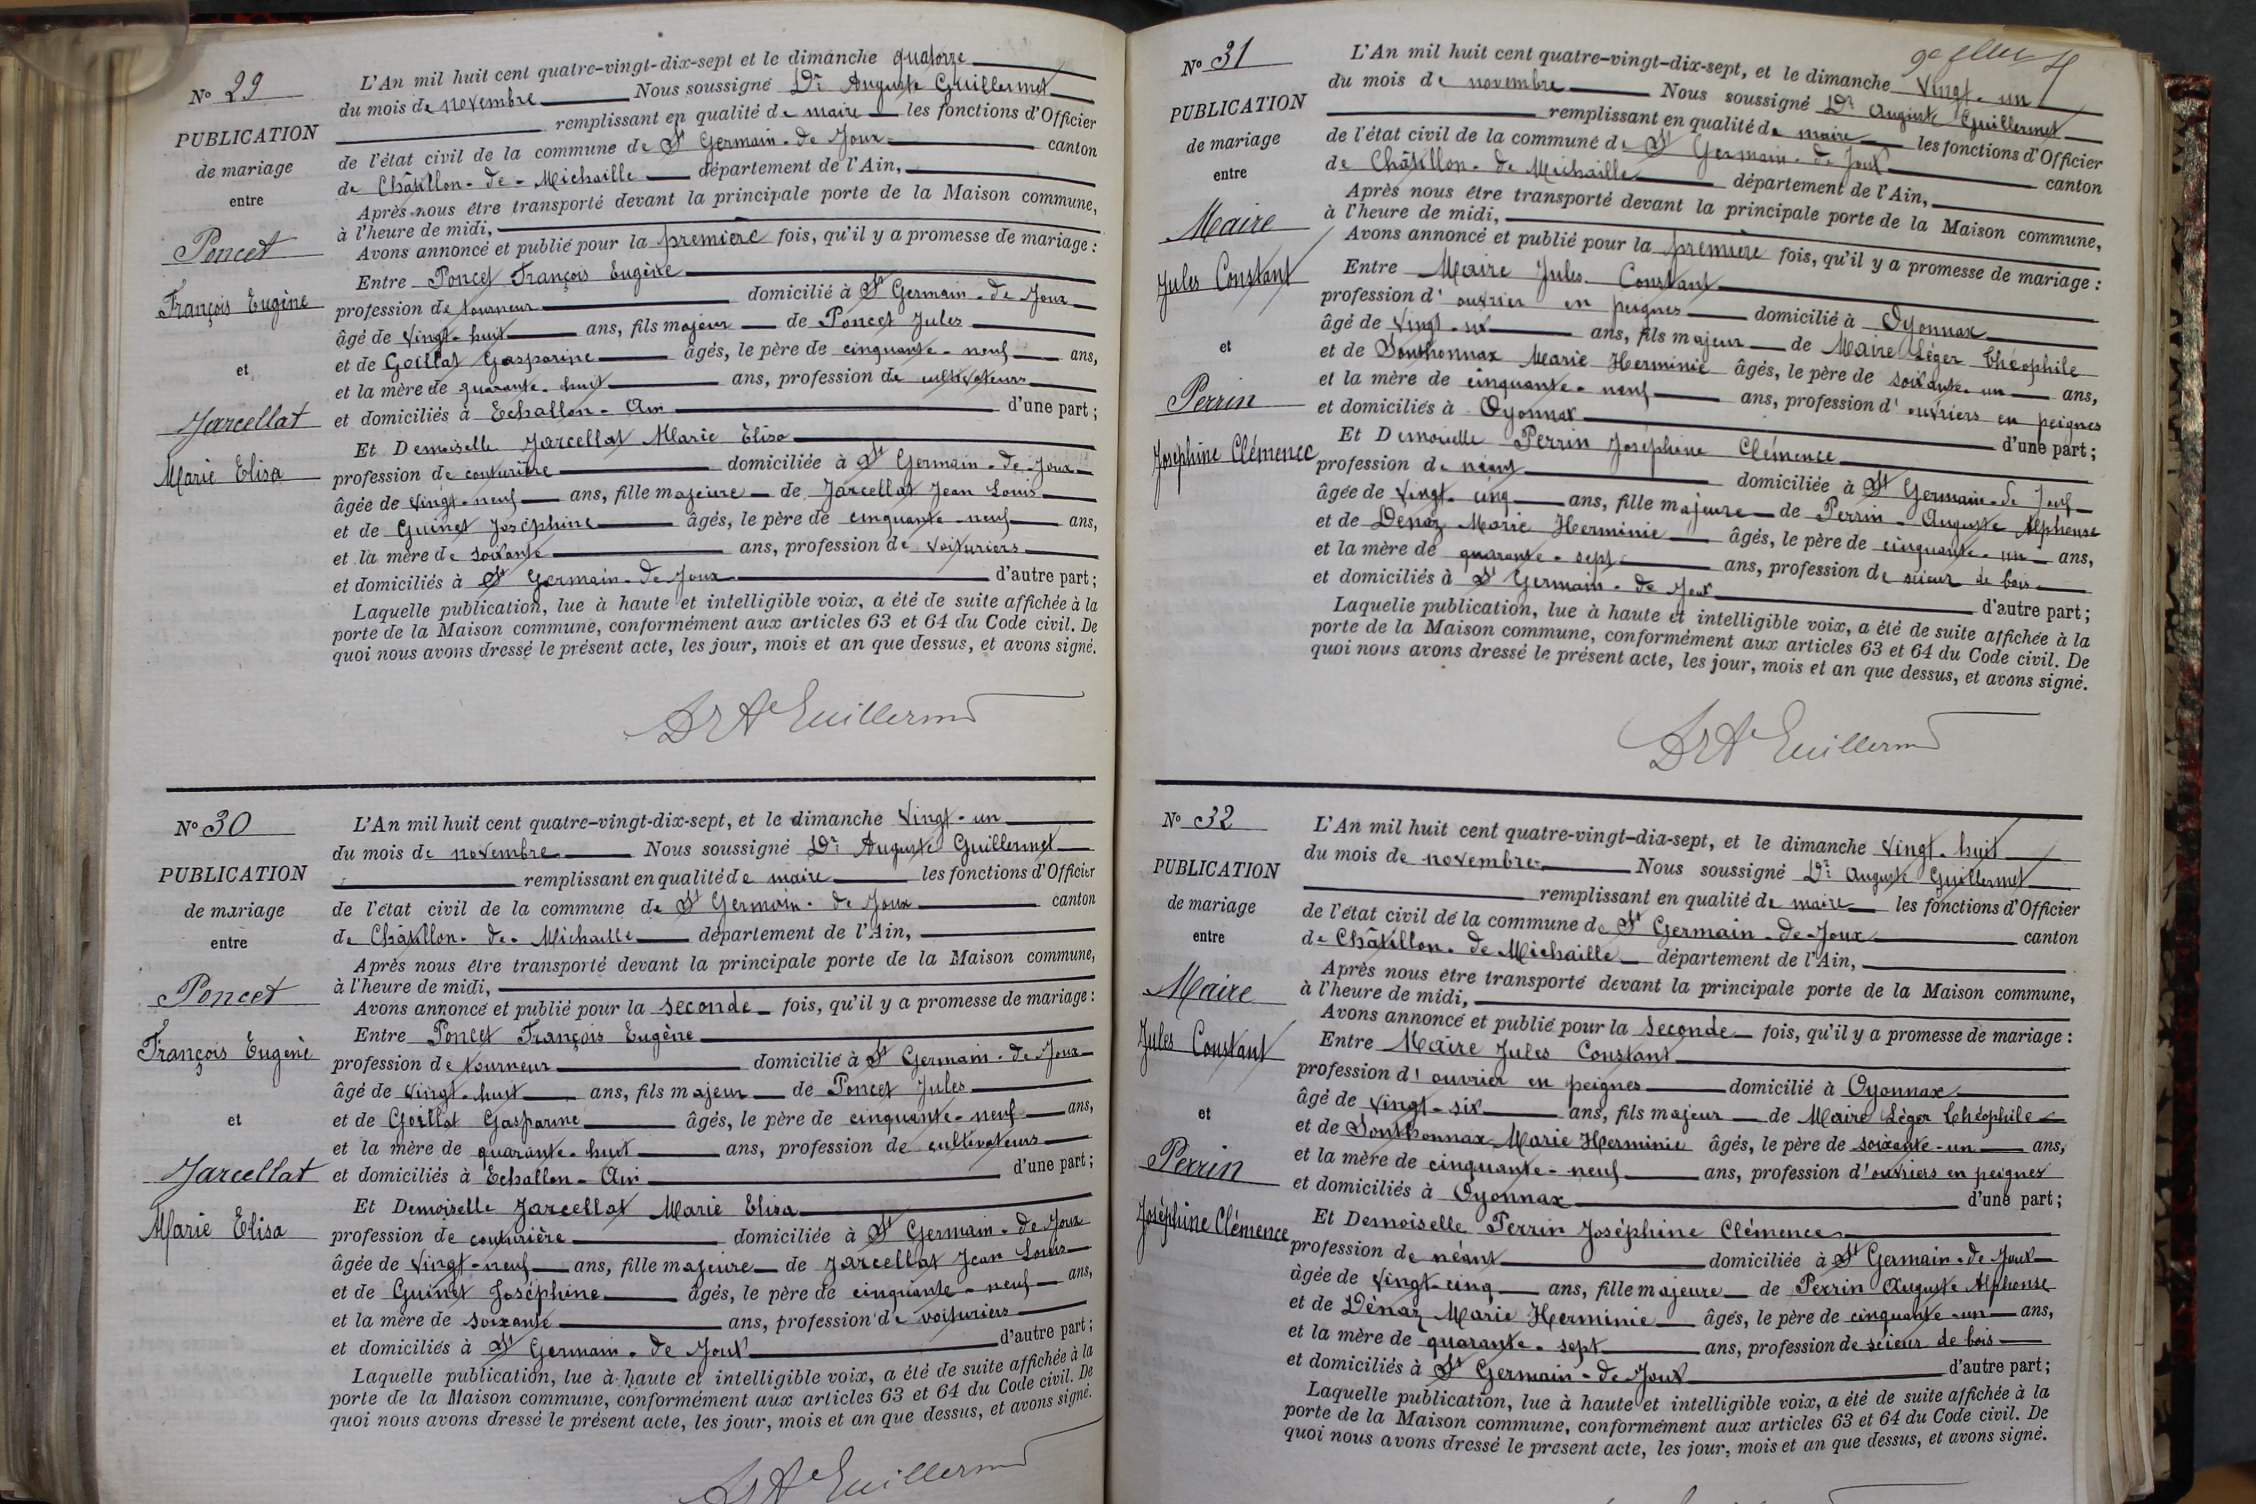 No 29
PUBLICATION
de mariage
entre
Poncet
François Eugène
et
Jarcellat
Marie Elisa
L'An mil huit cent quatre-vingt-dix-sept et le dimanche quatorze
du mois de novembre Nous soussigné Dr Auguste Guillermet
remplissant en qualité de maire les fonctions d'Officier
de l'état civil de la commune de St Germain-de-Joux canton
de Châtillon-de-Michaille département de l'Ain,
Après nous être transporté devant la principale porte de la Maison commune,
à l'heure de midi,
Avons annoncé et publié pour la première fois, qu'il y a promesse de mariage :
Entre Poncet François Eugène
profession de tourneur domicilié à St Germain-de-Joux
âgé de vingt-huit ans, fils majeur de Poncet Jules
et de Goillat Gasparine âgés, le père de cinquante-neuf ans,
et la mère de quarante-huit ans, profession de cultivateurs
et domiciliés à Echallon-Ain d'une part ;
Et Demoiselle Jarcellat Marie Elisa
profession de couturière domiciliée à St Germain-de-Joux
âgée de vingt-neuf ans, fille majeure de Jarcellat Jean Louis
et de Guinet Joséphine âgés, le père de cinquante-neuf ans,
et la mère de soixante ans, profession de voituriers
et domiciliés à St Germain-de-Joux d'autre part ;
Laquelle publication, lue à haute et intelligible voix, a été de suite affichée à la
porte de la Maison commune, conformément aux articles 63 et 64 du Code civil. De
quoi nous avons dressé le présent acte, les jour, mois et an que dessus, et avons signé.
Dr Ate Guillermet
No 30
PUBLICATION
de mariage
entre
Poncet
François Eugène
et
Jarcellat
Marie Elisa
L'An mil huit cent quatre-vingt-dix-sept, et le dimanche vingt-un
du mois de novembre Nous soussigné Dr Auguste Guillermet
remplissant en qualité de maire les fonctions d'Officier
de l'état civil de la commune de St Germain-de-Joux canton
de Châtillon-de-Michaille département de l'Ain,
Après nous être transporté devant la principale porte de la Maison commune,
à l'heure de midi,
Avons annoncé et publié pour la seconde fois, qu'il y a promesse de mariage :
Entre Poncet François Eugène
profession de tourneur domicilié à St Germain-de-Joux
âgé de vingt-huit ans, fils majeur de Poncet Jules
et de Goillat Gasparine âgés, le père de cinquante-neuf ans,
et la mère de quarante-huit ans, profession de cultivateurs
et domiciliés à Echallon-Ain d'une part ;
Et Demoiselle Jarcellat Marie Elisa
profession de couturière domiciliée à St Germain-de-Joux
âgée de vingt-neuf ans, fille majeure de Jarcellat Jean Louis
et de Guinet Joséphine âgés, le père de cinquante-neuf ans,
et la mère de soixante ans, profession de voituriers
et domiciliés à St Germain-de-Joux d'autre part ;
Laquelle publication, lue à haute et intelligible voix, a été de suite affichée à la
porte de la Maison commune, conformément aux articles 63 et 64 du Code civil. De
quoi nous avons dressé le présent acte, les jour, mois et an que dessus, et avons signé.
Dr Ate Guillermet
No 31
PUBLICATION
de mariage
entre
Maire
Jules Constant
et
Perrin
Joséphine Clémence
L'An mil huit cent quatre-vingt-dix-sept, et le dimanche vingt-un
du mois de novembre Nous soussigné Dr Auguste Guillermet
remplissant en qualité de maire les fonctions d'Officier
de l'état civil de la commune de St Germain-de-Joux canton
de Châtillon-de-Michaille département de l'Ain,
Après nous être transporté devant la principale porte de la Maison commune,
à l'heure de midi,
Avons annoncé et publié pour la première fois, qu'il y a promesse de mariage :
Entre Maire Jules Constant
profession d'ouvrier en peignes domicilié à Oyonnax
âgé de vingt-six ans, fils majeur de Maire Léger Théophile
et de Sonthonnax Marie Herminie âgés, le père de soixante-un ans,
et la mère de cinquante-neuf ans, profession d'ouvriers en peignes
et domiciliés à Oyonnax d'une part ;
Et Demoiselle Perrin Joséphine Clémence
profession de néant domiciliée à St Germain-de-Joux
âgée de vingt-cinq ans, fille majeure de Perrin Auguste Alphonse
et de Dénaz Marie Herminie âgés, le père de cinquante-un ans,
et la mère de quarante-sept ans, profession de scieur de bois
et domiciliés à St Germain-de-Joux d'autre part ;
Laquelle publication, lue à haute et intelligible voix, a été de suite affichée à la
porte de la Maison commune, conformément aux articles 63 et 64 du Code civil. De
quoi nous avons dressé le présent acte, les jour, mois et an que dessus, et avons signé.
Dr Ate Guillermet
No 32
PUBLICATION
de mariage
entre
Maire
Jules Constant
et
Perrin
Joséphine Clémence
L'An mil huit cent quatre-vingt-dia-sept, et le dimanche vingt-huit
du mois de novembre Nous soussigné Dr Auguste Guillermet
remplissant en qualité de maire les fonctions d'Officier
de l'état civil de la commune de St Germain-de-Joux canton
de Châtillon-de-Michaille département de l'Ain,
Après nous être transporté devant la principale porte de la Maison commune,
à l'heure de midi,
Avons annoncé et publié pour la seconde fois, qu'il y a promesse de mariage :
Entre Maire Jules Constant
profession d'ouvrier en peignes domicilié à Oyonnax
âgé de vingt-six ans, fils majeur de Maire Léger Théophile
et de Sonthonnax Marie Herminie âgés, le père de soixante-un ans,
et la mère de cinquante-neuf ans, profession d'ouvriers en peignes
et domiciliés à Oyonnax d'une part ;
Et Demoiselle Perrin Joséphine Clémence
profession de néant domiciliée à St Germain-de-Joux
âgée de vingt-cinq ans, fille majeure de Perrin Auguste Alphonse
et de Dénaz Marie Herminie âgés, le père de cinquante-un ans,
et la mère de quarante-sept ans, profession de scieur de bois
et domiciliés à St Germain-de-Joux d'autre part ;
Laquelle publication, lue à haute et intelligible voix, a été de suite affichée à la
porte de la Maison commune, conformément aux articles 63 et 64 du Code civil. De
quoi nous avons dressé le présent acte, les jour, mois et an que dessus, et avons signé.